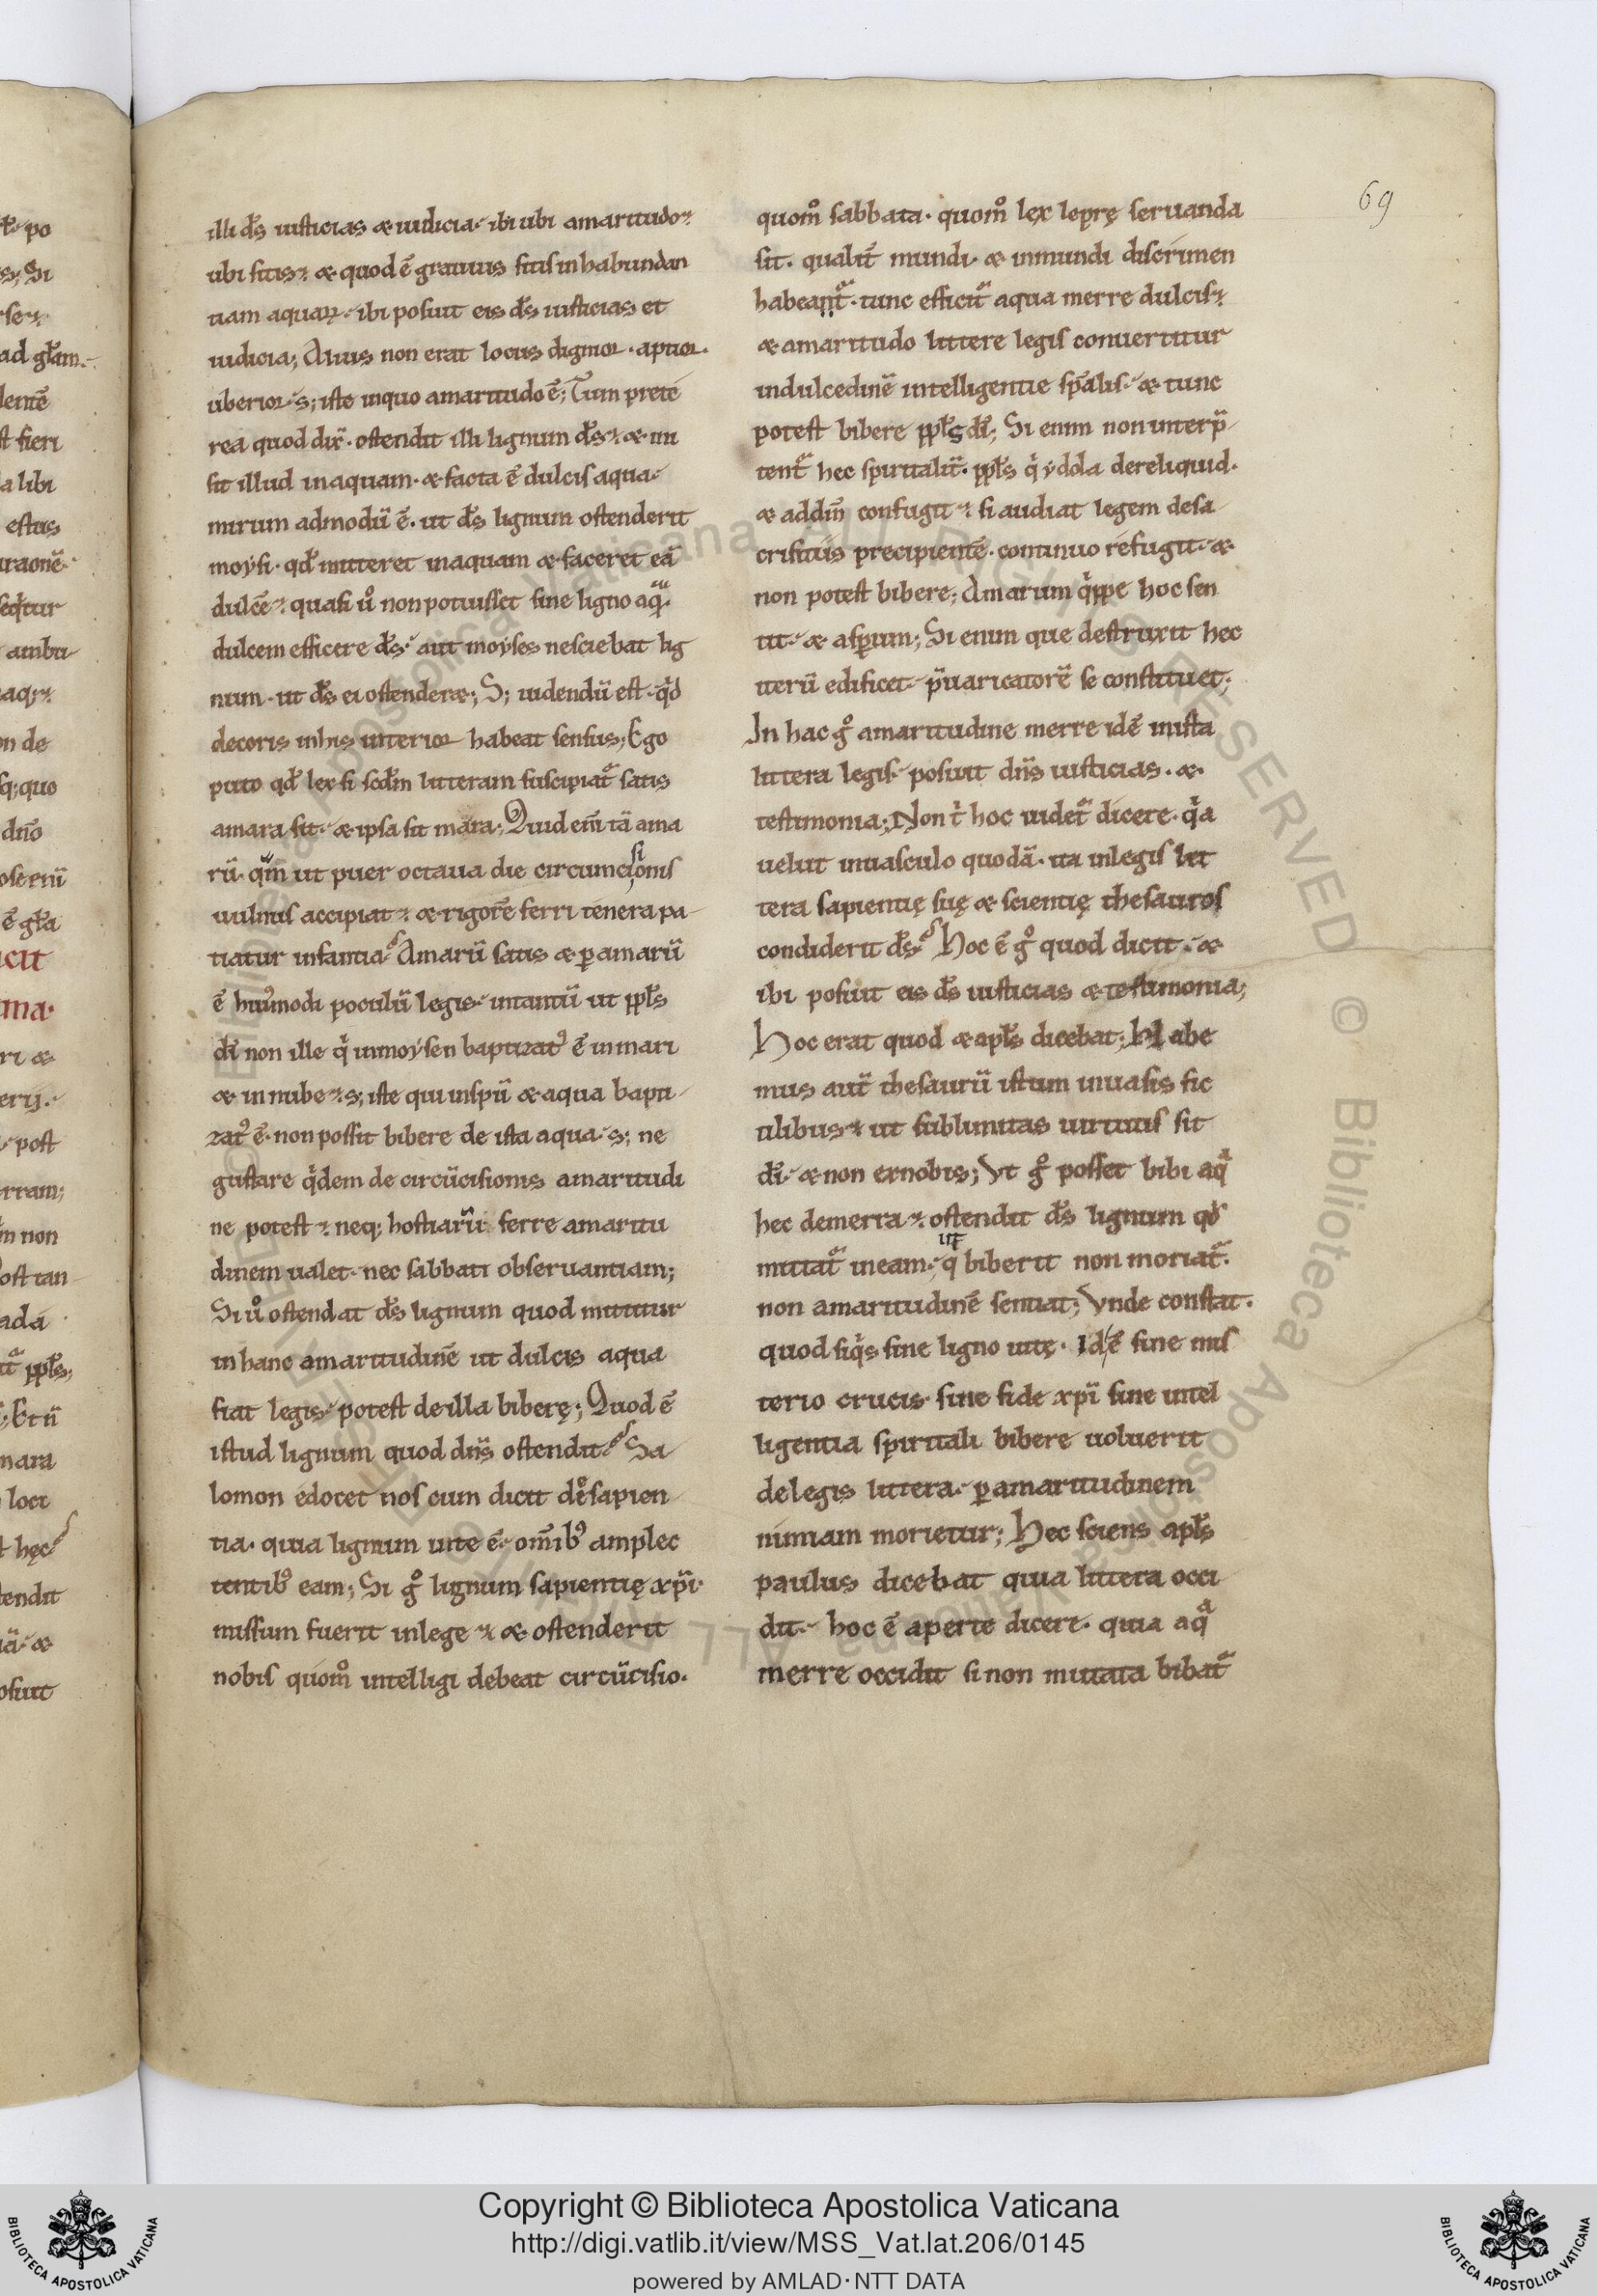 69
illi d̅s iusticias & iudicia. ibi ubi amaritudo.
ubi sitis. & quod ē grauius sitis in habundan
tiam aquaꝝ. ibi posuit eis d̅s iusticias et
iudicia; Alius non erat locus dignior. aptior.
uberior. s; iste inquo amaritudo ē; Tum prete
rea quod dix̅. ostendit illi lignum d̅s. & mi
sit illud inaquam. & facta ē dulcis aqua.
mirum admodū ē. ut d̅s lignum ostenderit
moysi. qd̅ mitteret inaquam & faceret eā
dulcē. quasi uͦ non potuisset sine ligno aqͣ̃.
dulcem efficere d̅s. aut moyses nesciebat lig
num. ut d̅s ei ostender&; S; uidendū est. qͥd
decoris inhis interior habeat sensus; Ego
puto qd̅ lex si scd̅m litteram suscipiat᷑ satis
amara sit. & ipsa sit mara; Quid em̅ tā ama
rū. qͣm ut puer octaua die circumcisionis
uulnus accipiat. & rigorē ferri tenera pa
tiatur infantia? Amarū satis & ꝑamarū
ē huiꝰmodi poculū legis. intantū ut ppl̅s
dī non ille qͥ inmoysen baptizatꝰ ē inmari
& in nube. s; iste qui inspū & aqua bapti
zatꝰ ē. non possit bibere de ista aqua. s; ne
gustare qͥdem de circūcisionis amaritudi
ne potest. neq; hostiarū ferre amaritu
dinem ualet. nec sabbati obseruantiam;
Si uͦ ostendat d̅s lignum quod mittitur
inhanc amaritudinē ut dulcis aqua
fiat legis. potest deilla biberę; Quod ē
istud lignum quod dn̅s ostendit? Sa
lomon edocet nos cum dicit de sapien
tia. quia lignum uite ē. om̅ibꝰ amplec
tentibꝰ eam; Si gͦ lignum sapientię xp̅i.
missum fuerit inlege. & ostenderit
nobis quom̊ intelligi debeat circūcisio.
quom̊ sabbata. quom̊ lex leprę seruanda
sit. qualit̅ mundi. & inmundi discrimen
habeant᷑. tunc efficit᷑ aqua merre dulcis.
& amaritudo littere legis conuertitur
indulcedinē intelligentie sp̅alis. & tunc
potest bibere ppl̅s dī; Si enim non interp̅
tent᷑ hec spiritalit̅. ppl̅s qͥ ydola dereliquid.
& addn̅m confugit. si audiat legem desa
crificiis precipientē. continuo refugit. &
non potest bibere; Amarum qͥppe hoc sen
tit. & asꝑum; Si enim que destruxit hec
iterū edificet. p̅uaricatorē se constituet;
In hac gͦ amaritudine merre idē inista
littera legis. posuit dn̅s iusticias. &.
testimonia; Non t̅ hoc uidet᷑ dicere. qͥa
uelut inuasculo quodā. ita inlegis lit
tera sapientię suę & scientię thesauros
condiderit d̅s? Hoc ē gͦ quod dicit. &
ibi posuit eis d̅s iusticias & testimonia;
Hoc erat quod & apl̅s dicebat; Habe
mus aut̅ thesaurū istum inuasis fic
tilibus. ut sublimitas uirtutis sit
dī. & non exnobis; Vt gͦ posset bibi aqͣ
hec demerra. ostendit d̅s lignum qd̅
mittat᷑ ineam. ut q̇ biberit non moriat᷑.
non amaritudinē sentiat; Vnde constat.
quod siqͥs sine ligno uitę. Id ē sine mis
terio crucis. sine fide xp̅i sine intel
ligentia spirituali bibere uoluerit
delegis littera. ꝑamaritudinem
nimiam morietur; Hec sciens apl̅s
paulus dicebat quia littera occi
dit. hoc ē aperte dicere. quia aqͣ
merre occidit si non mutata bibat᷑
Copyright © Biblioteca Apostolica Vaticana
http://digi.vatlib.it/view/MSS_Vat.lat.206/0145
powered by AMLAD·NTT DATA